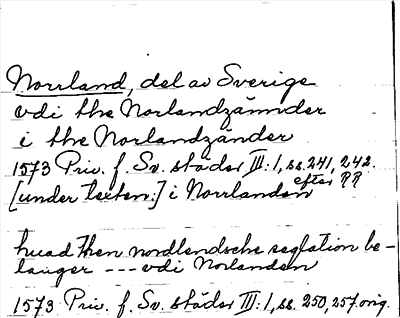 Norrland, del av Sverige
vdi the Norlandzännder
i the Norlandzänder
1573 Priv. f. Sv. städer III: 1, ss. 241, 242.
efter RR
[under texten:] i Norrlanden
huad then nordlendsche seglation be-
langer --- vdi Norlanden
1573 Priv. f. Sv. städer III: 1, ss. 250, 257. orig.